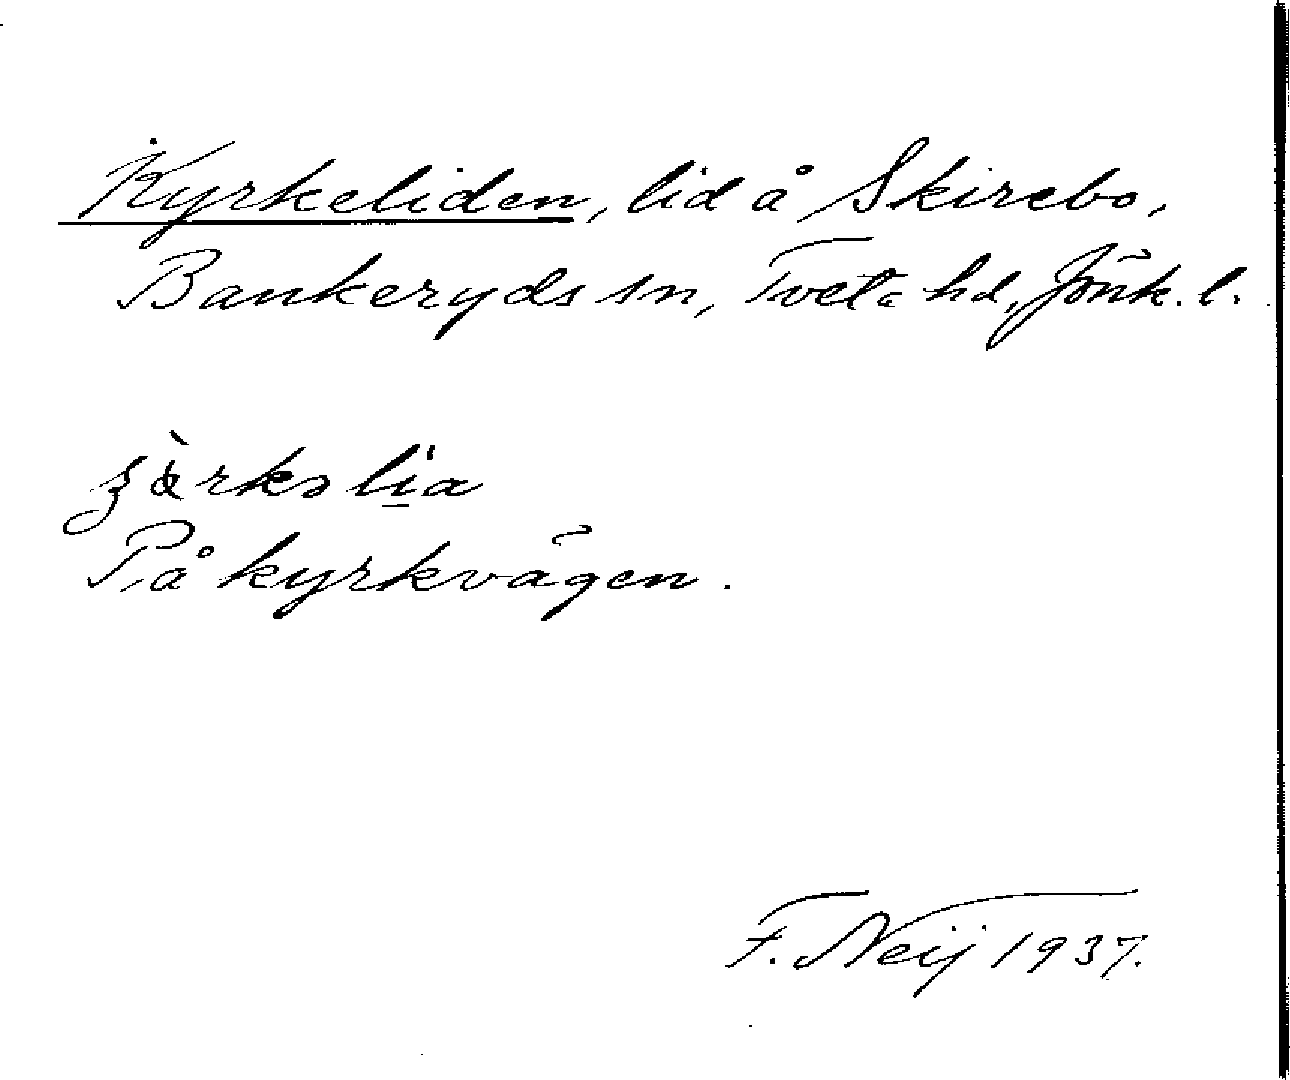 Kyrkeliden, lid å Skirebo,
Bankeryds sn, Tveta hd, Jönk. l.
På kyrkvägen.
F. Neij 1937.